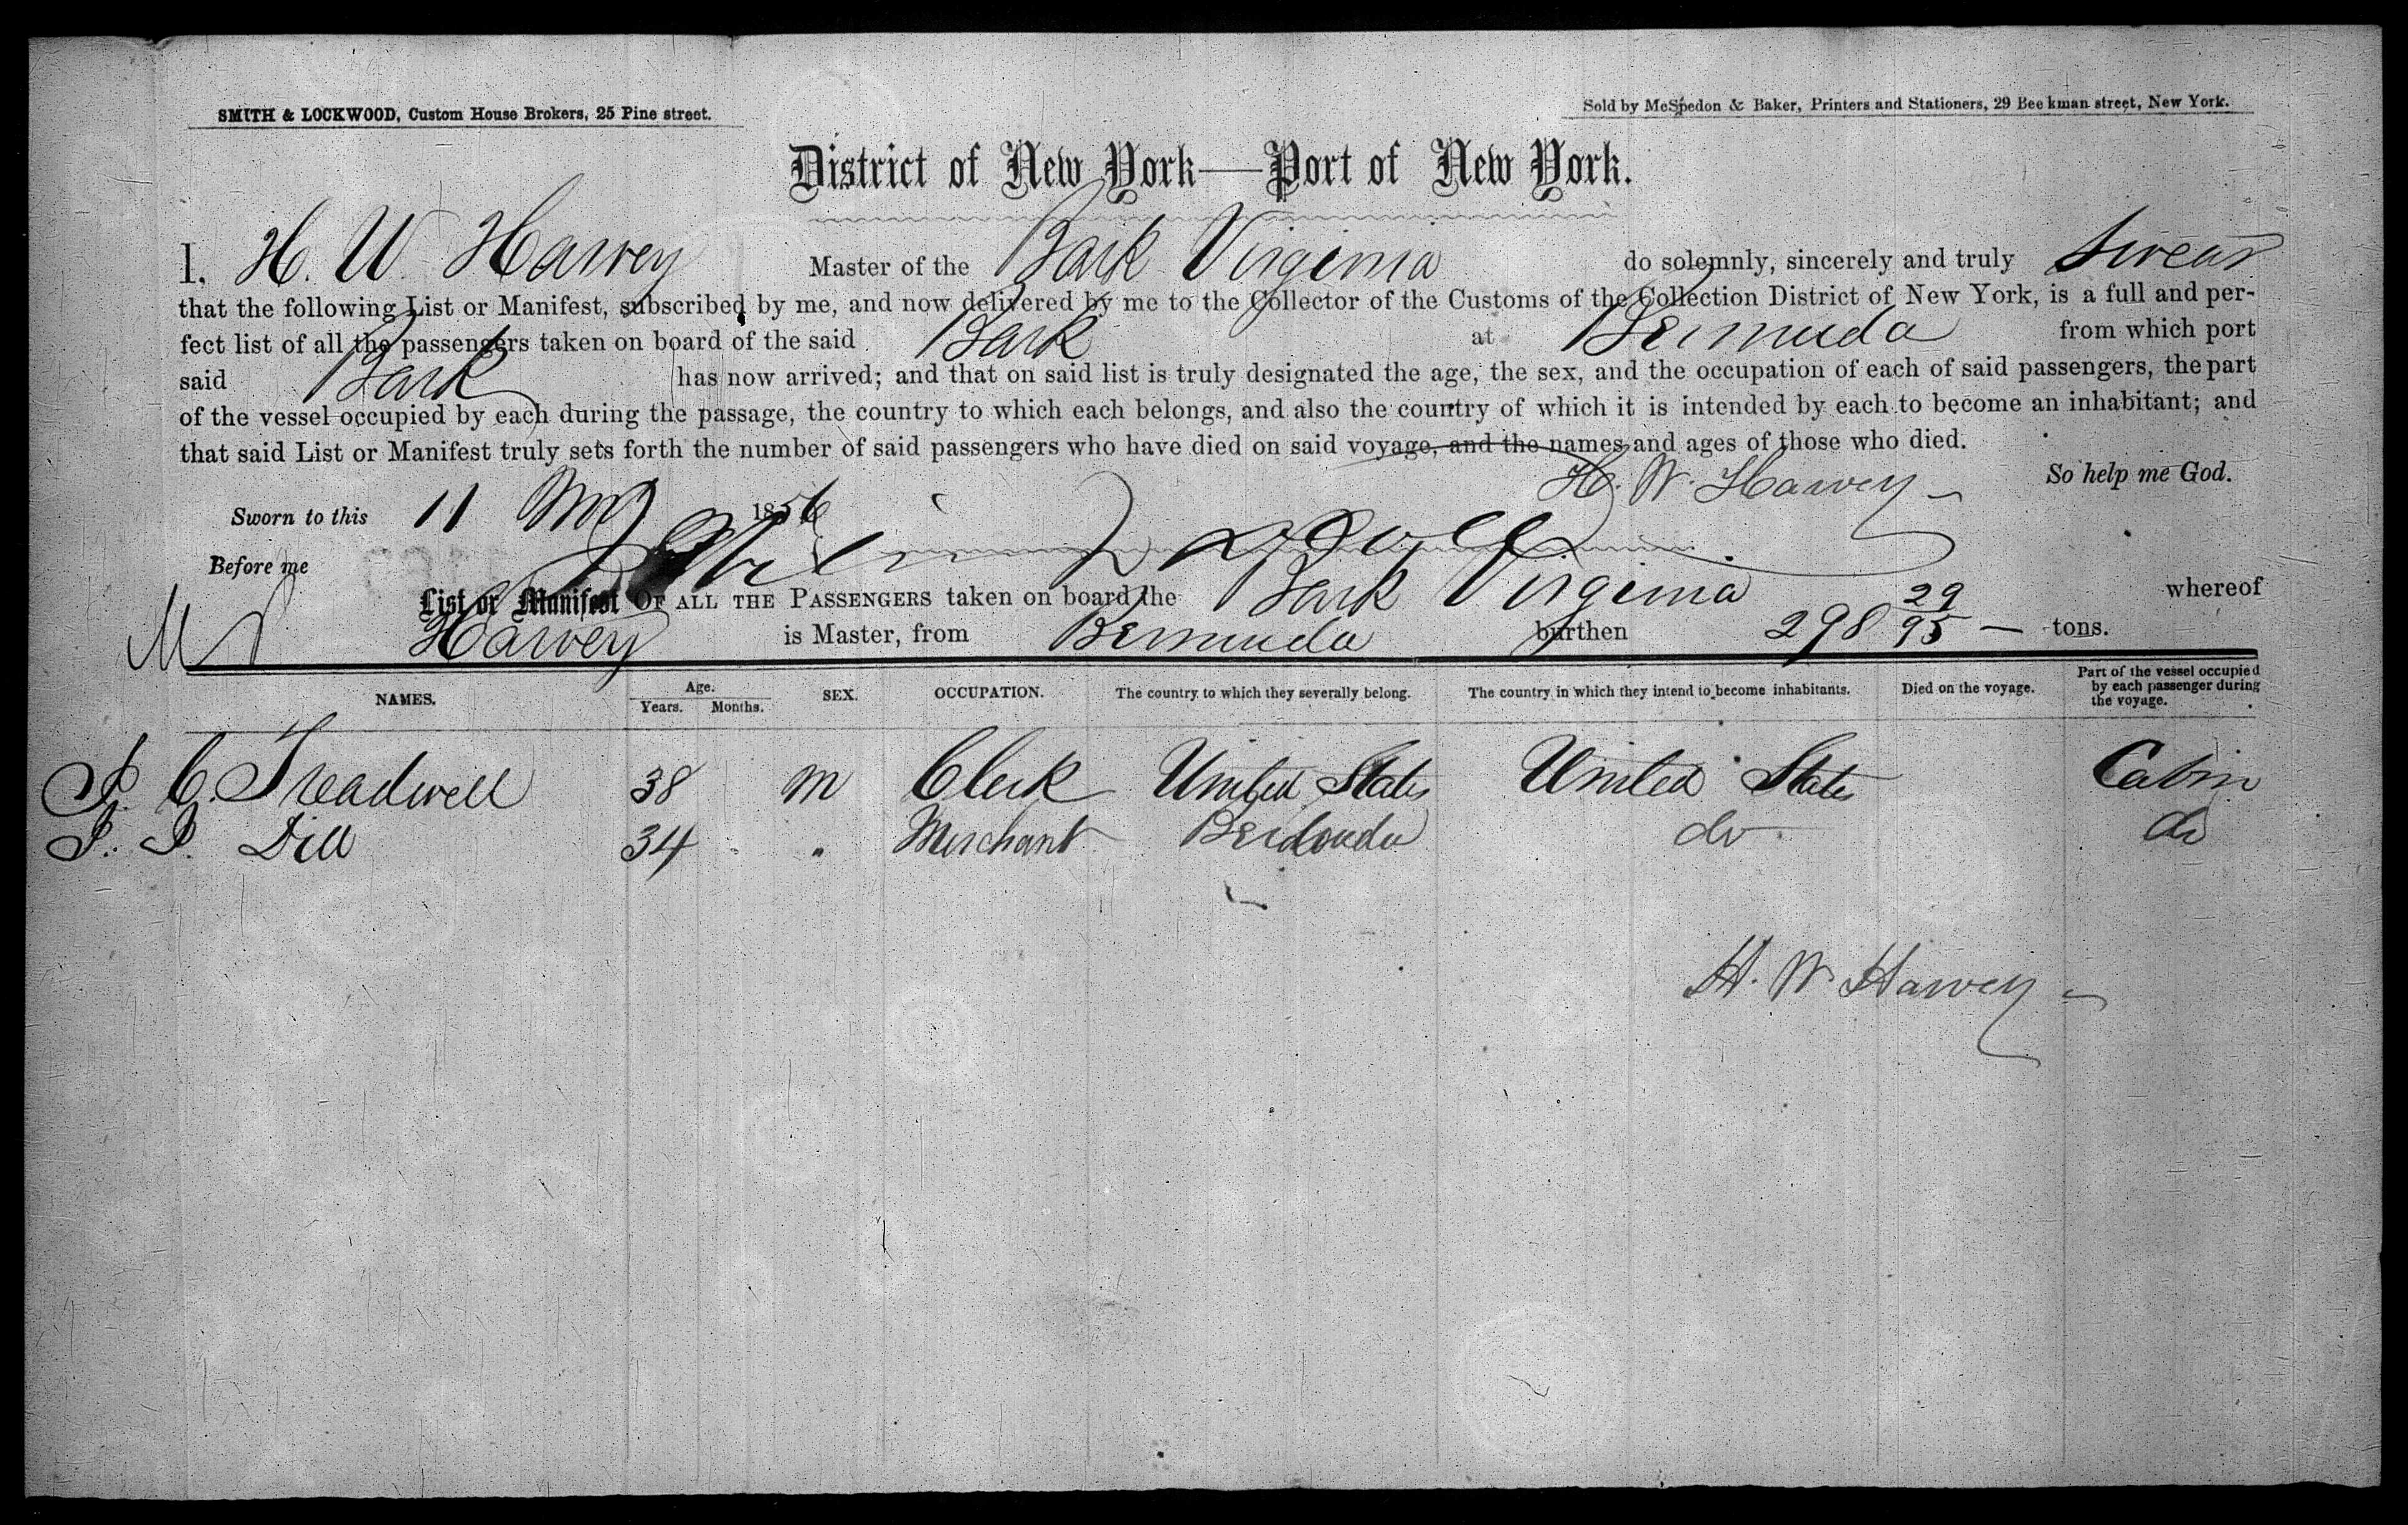 SMITH & LOCKWOOD, Custom House Brokers, 25 Pine street.
Sold by McSpedon & Baker, Printers and Stationers, 29 Beekman street, New York.
District of New York—Port of New York.
I, H. W Harvey Master of the Bark Virginia do solemnly, sincerely and truly swear
that the following List or Manifest, subscribed by me, and now delivered by me to the Collector of the Customs of the Collection District of New York, is a full and per-
fect list of all the passengers taken on board of the said Bark at Bermuda from which port
said Bark has now arrived; and that on said list is truly designated the age, the sex, and the occupation of each of said passengers, the part
of the vessel occupied by each during the passage, the country to which each belongs, and also the country of which it is intended by each to become an inhabitant; and
that said List or Manifest truly sets forth the number of said passengers who have died on said voyage, and the names and ages of those who died.
H. W. Harvey So help me God.
Sworn to this 11 1856
Before me
List or Manifest OF ALL THE PASSENGERS taken on board the Bark Virginia whereof
Harvey is Master, from Bermuda burthen 298 29/95 — tons.
NAMES. Age. Years. Months. SEX. OCCUPATION. The country to which they severally belong. The country in which they intend to become inhabitants. Died on the voyage. Part of the vessel occupied by each passenger during the voyage.
C. Treadwell 38 m Clerk United States United States Cabin
Dill 34 " Merchant do do
H. W. Harvey